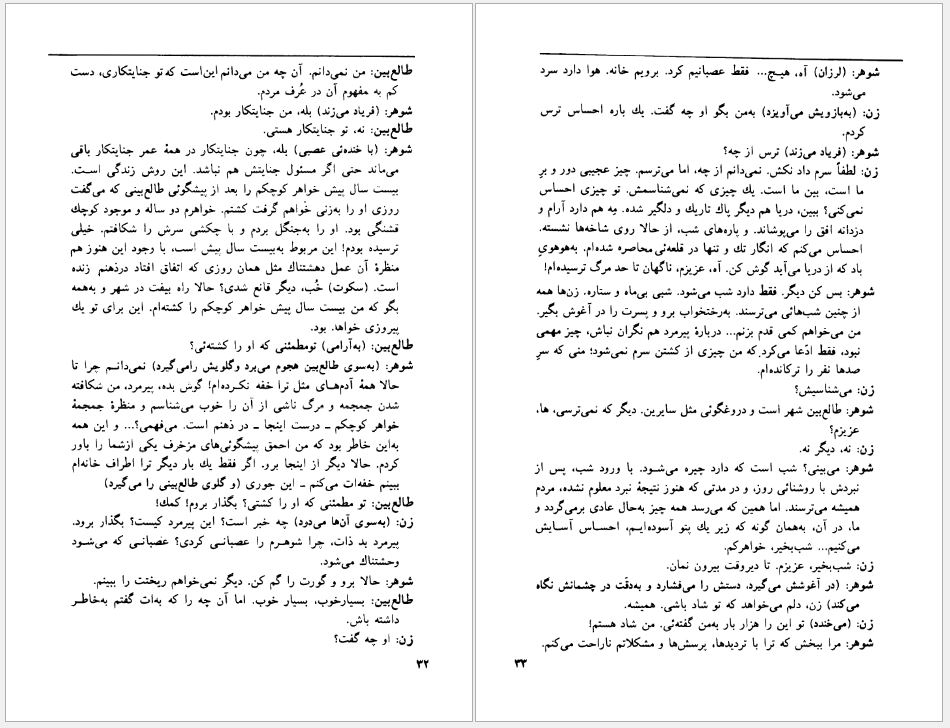 طالع‌بین: من نمی‌دانم. آن چه من می‌دانم این‌است که‌تو جنایتکاری، دست
کم به مفهوم آن در عُرف مردم.
شوهر: (فریاد می‌زند) بله، من جنایتکار بودم.
طالع‌بین: نه، تو جنایتکار هستی.
شوهر: (با خنده‌ئی عصبی) بله، چون جنایتکار در همهٔ عمر جنایتکار باقی
می‌ماند حتی اگر مسئول جنایتش هم نباشد. این روش زندگی است.
بیست سال پیش خواهر کوچکم را بعد از پیشگوئی طالع‌بینی که می‌گفت
روزی او را به‌زنی خواهم گرفت کشتم. خواهرم دو ساله و موجود کوچك
قشنگی بود. او را به‌جنگل بردم و با چکشی سرش را شکافتم. خیلی
ترسیده بودم! این مربوط به‌بیست سال پیش است، با وجود این هنوز هم
منظرهٔ آن عمل دهشتناك مثل همان روزی که اتفاق افتاد درذهنم زنده
است. (سکوت) خُب، دیگر قانع شدی؟ حالا راه بیفت در شهر و به‌همه
بگو که من بیست سال پیش خواهر کوچکم را کشته‌ام. این برای تو یك
پیروزی خواهد. بود.
طالع‌بین: (به‌آرامی) تومطمئنی که او را کشته‌ئی؟
شوهر: (به‌سوی طالع‌بین هجوم می‌برد وگلویش رامی‌گیرد) نمی‌دانم چرا تا
حالا همهٔ آدم‌های مثل ترا خفه نکرده‌ام! گوش بده، پیرمرد، من شکافته
شدن جمجمه و مرگ ناشی از آن را خوب می‌شناسم و منظرهٔ جمجمهٔ
خواهر کوچکم ـ درست اینجا ـ در ذهنم است. می‌فهمی؟... و این همه
به‌این خاطر بود که من احمق پیشگوئی‌های مزخرف یکی ازشما را باور
کردم. حالا دیگر از اینجا برو. اگر فقط یك بار دیگر ترا اطراف خانه‌ام
ببینم خفه‌ات می‌کنم ـ این جوری (و گلوی طالع‌بینی را می‌گیرد)
طالع‌بین: تو مطمئنی که او را کشتی؟ بگذار بروم! کمك!
زن: (به‌سوی آن‌ها می‌دود) چه خبر است؟ این پیرمرد کیست؟ بگذار برود.
پیرمرد بد ذات، چرا شوهرم را عصبانی کردی؟ عصبانی که می‌شود
وحشتناك می‌شود.
شوهر: حالا برو و گورت را گم کن. دیگر نمی‌خواهم ریختت را ببینم.
طالع‌بین: بسیارخوب، بسیار خوب. اما آن چه را که به‌ات گفتم به‌خاطر
داشته باش.
زن: او چه گفت؟
۳۲
شوهر: (لرزان) آه، هیچ... فقط عصبانیم کرد. برویم خانه. هوا دارد سرد
می‌شود.
زن: (به‌بازویش می‌آویزد) به‌من بگو او چه گفت. یك باره احساس ترس
کردم.
شوهر: (فریاد می‌زند) ترس از چه؟
زن: لطفاً سرم داد نکش. نمی‌دانم از چه، اما می‌ترسم. چیز عجیبی دور و برِ
ما است، بین ما است. یك چیزی که نمی‌شناسمش. تو چیزی احساس
نمی‌کنی؟ ببین، دریا هم دیگر پاك تاریك و دلگیر شده. مِه هم دارد آرام و
دزدانه افق را می‌پوشاند. و پاره‌های شب، از حالا روی شاخه‌ها نشسته.
احساس می‌کنم که انگار تك و تنها در قلعه‌ئی محاصره شده‌ام. به‌هوهویِ
باد که از دریا می‌آید گوش کن. آه، عزیزم، ناگهان تا حد مرگ ترسیده‌ام!
شوهر: بس کن دیگر. فقط دارد شب می‌شود. شبی بی‌ماه و ستاره. زن‌ها همه
از چنین شب‌هائی می‌ترسند. به‌رختخواب برو و پسرت را در آغوش بگیر.
من می‌خواهم کمی قدم بزنم... دربارهٔ پیرمرد هم نگران نباش، چیز مهمی
نبود، فقط ادّعا می‌کرد که من چیزی از کشتن سرم نمی‌شود؛ منی که سرِ
صدها نفر را ترکانده‌ام.
زن: می‌شناسیش؟
شوهر: طالع‌بین شهر است و دروغگوئی مثل سایرین. دیگر که نمی‌ترسی، ها،
عزیزم؟
زن: نه، دیگر نه.
شوهر: می‌بینی؟ شب است که دارد چیره می‌شود. با ورود شب، پس از
نبردش با روشنائی روز، و در مدتی که هنوز نتیجهٔ نبرد معلوم نشده، مردم
همیشه می‌ترسند. اما همین که می‌رسد همه چیز به‌حال عادی برمی‌گردد و
ما، در آن، به‌همان گونه که زیر یك پتو آسوده‌ایم، احساس آسایش
می‌کنیم... شب‌بخیر، خواهرکم.
زن: شب‌بخیر، عزیزم. تا دیروقت بیرون نمان.
شوهر: (در آغوشش می‌گیرد، دستش را می‌فشارد و به‌دقّت در چشمانش نگاه
می‌کند) زن، دلم می‌خواهد که تو شاد باشی. همیشه.
زن: (می‌خندد) تو این را هزار بار به‌من گفته‌ئی. من شاد هستم!
شوهر: مرا ببخش که ترا با تردیدها، پرسش‌ها و مشکلاتم ناراحت می‌کنم.
۳۳